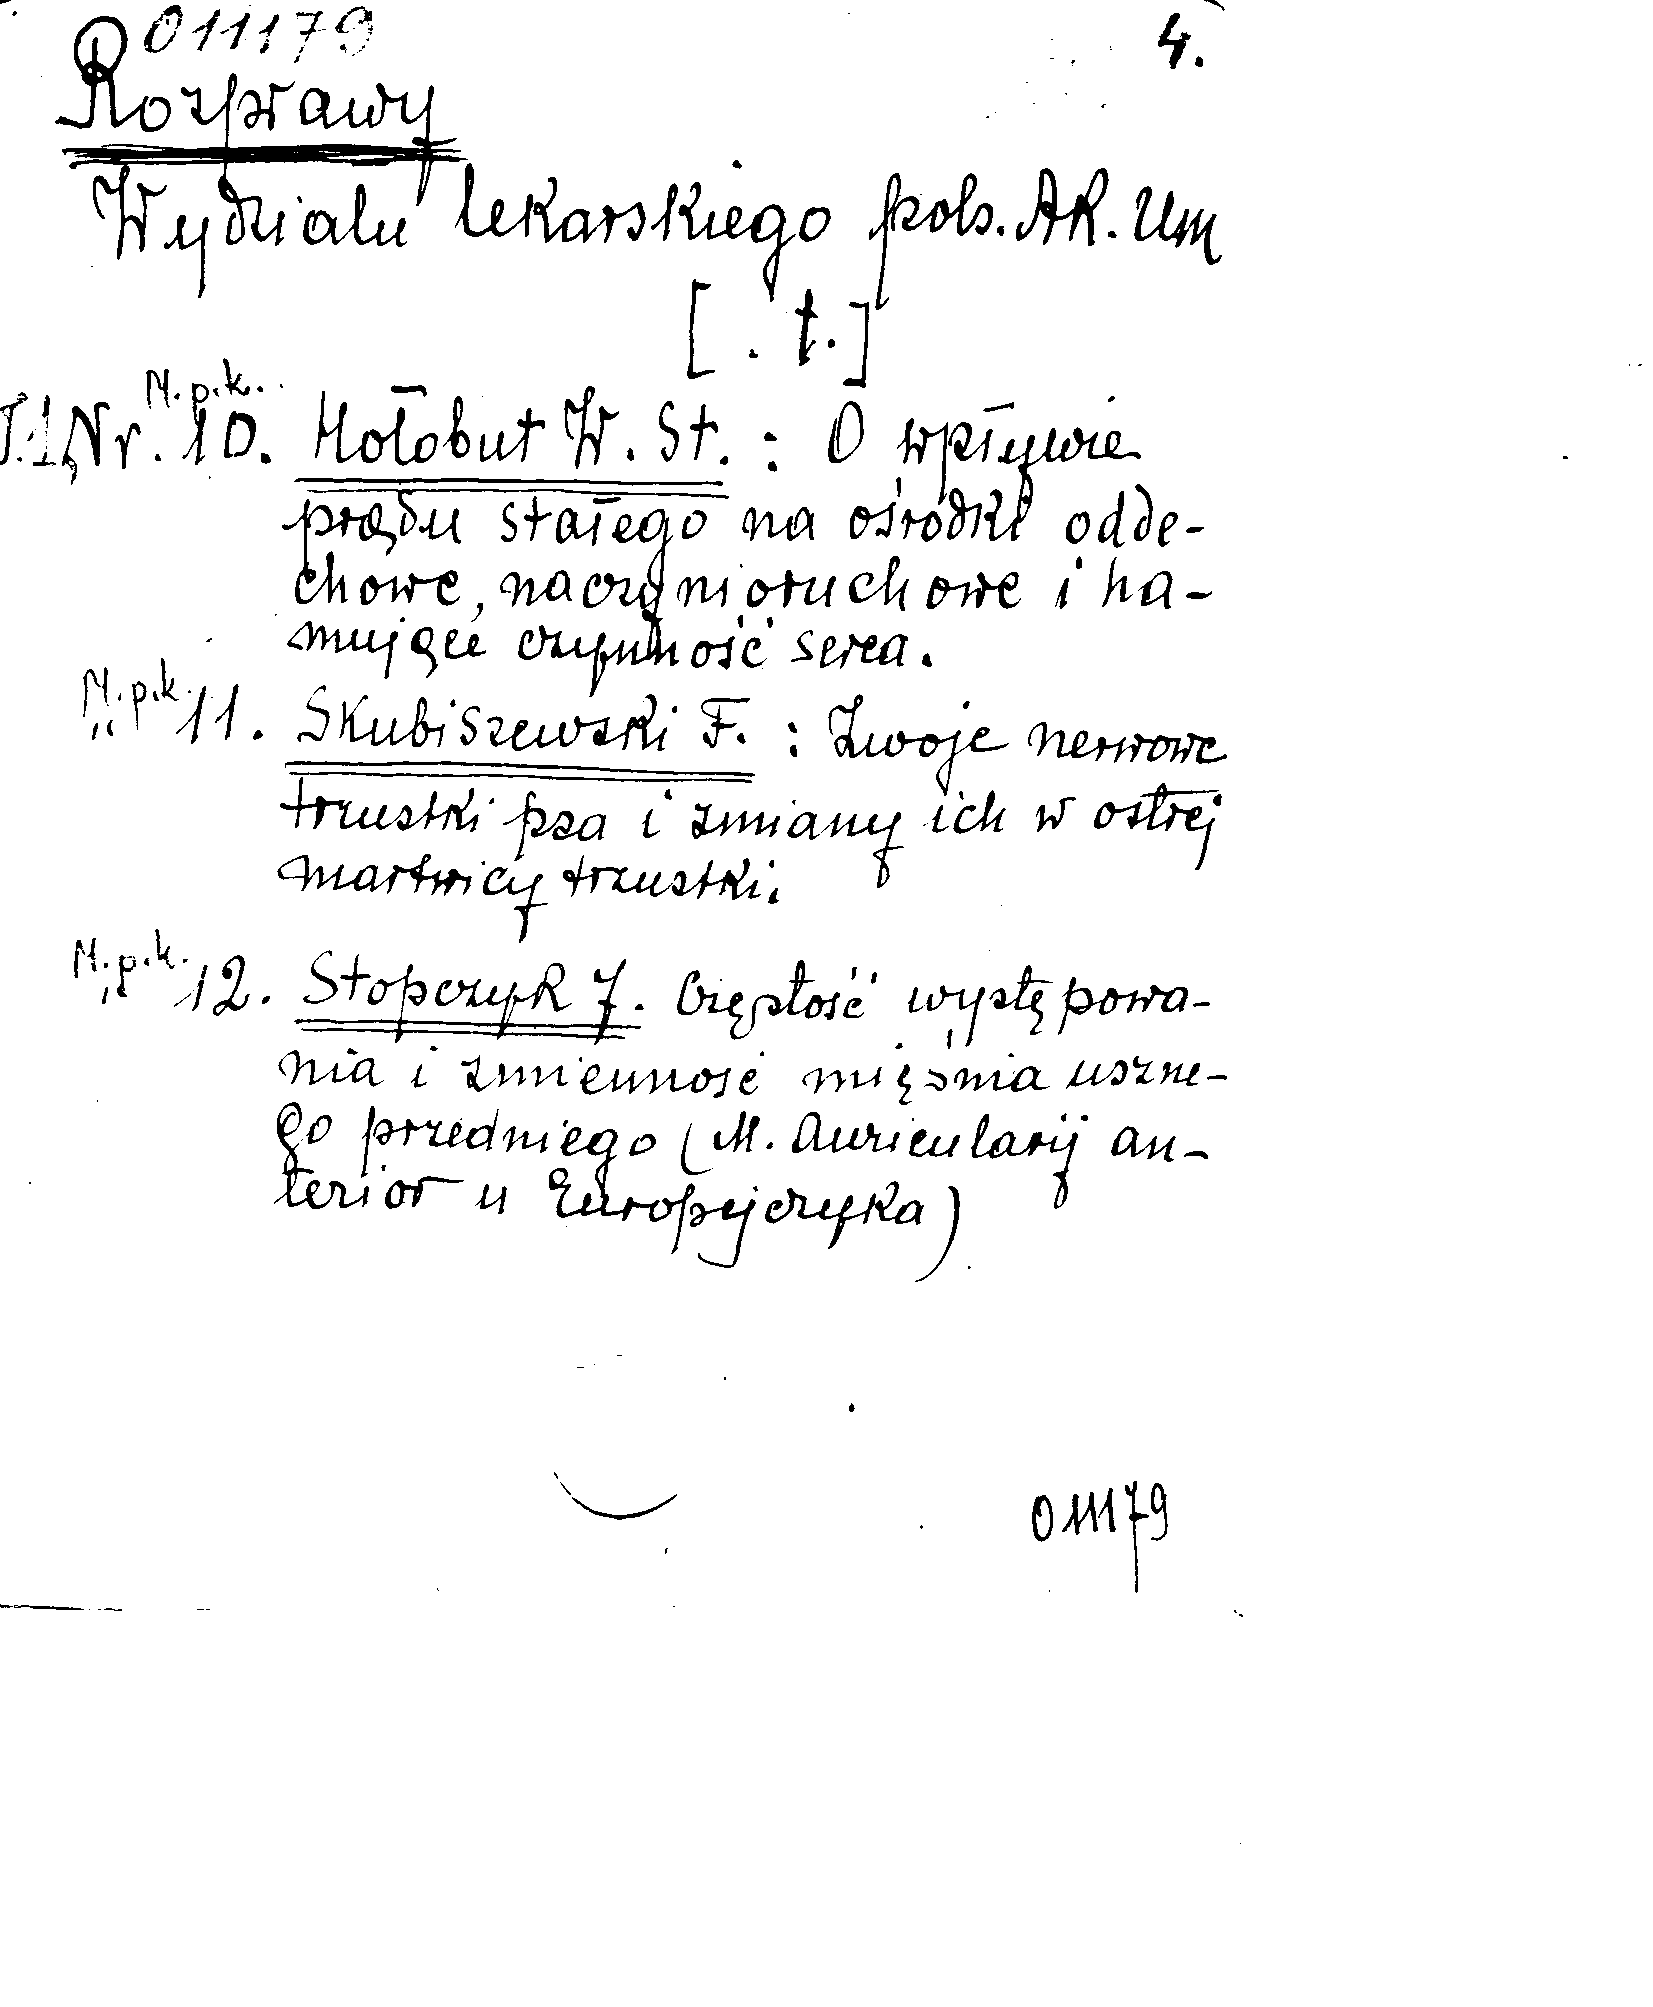 011179 4.
Rozprawy
Wydziału lekarskiego pols. Ak. Um
[ . t.]
M.p.k.
T.1, Nr. 10. Hołobut W. St. : O wpływie
prądu stałego na ośrodki odde-
chowe, naczynioruchowe i ha-
mujące czynność serca.
M.p.k.
„ 11. Skubiszewski F. : Zwoje nerwowe
trzustki psa i zmiany ich w ostrej
martwicy trzustki.
M.p.k.
„ 12. Stopczyk J. Częstość występowa-
nia i zmienność mięśnia uszne-
go przedniego (M. Auricularij an-
terior u Europejczyka)
011179